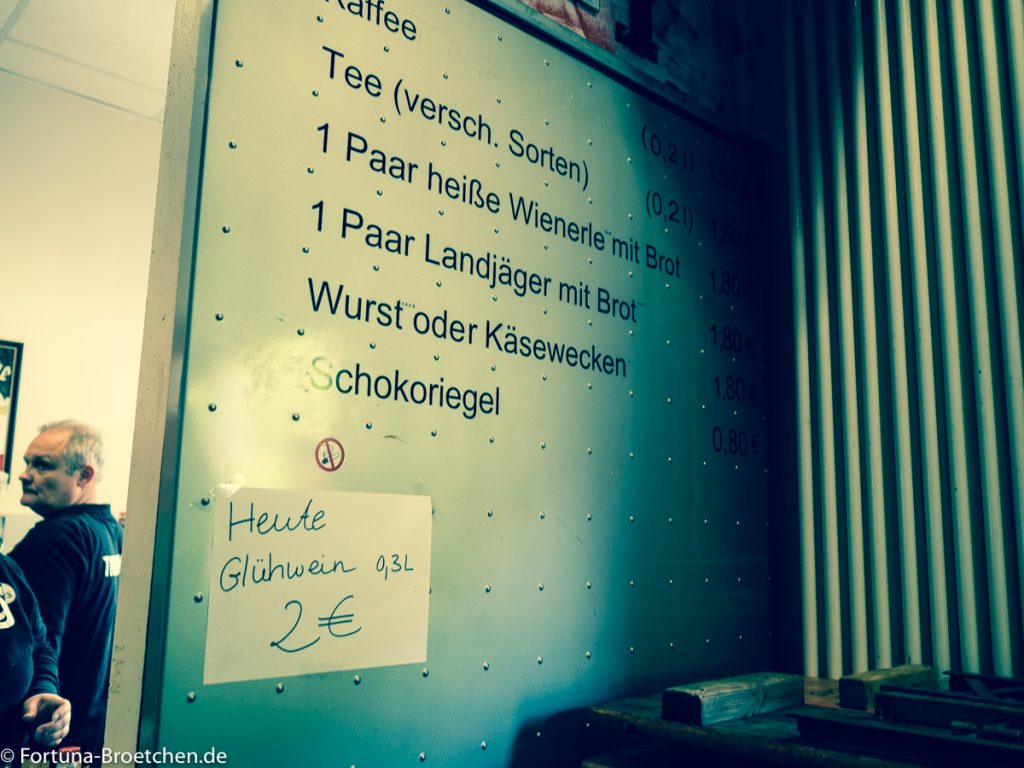 Kaffee (0,2 l) 1,50 €
Tee (versch. Sorten) (0,2 l) 1,50 €
1 Paar heiße Wienerle mit Brot 1,80 €
1 Paar Landjäger mit Brot 1,80 €
Wurst oder Käsewecken 1,80 €
Schokoriegel 0,80 €
Heute
Glühwein 0,3L
2 €
© Fortuna-Broetchen.de